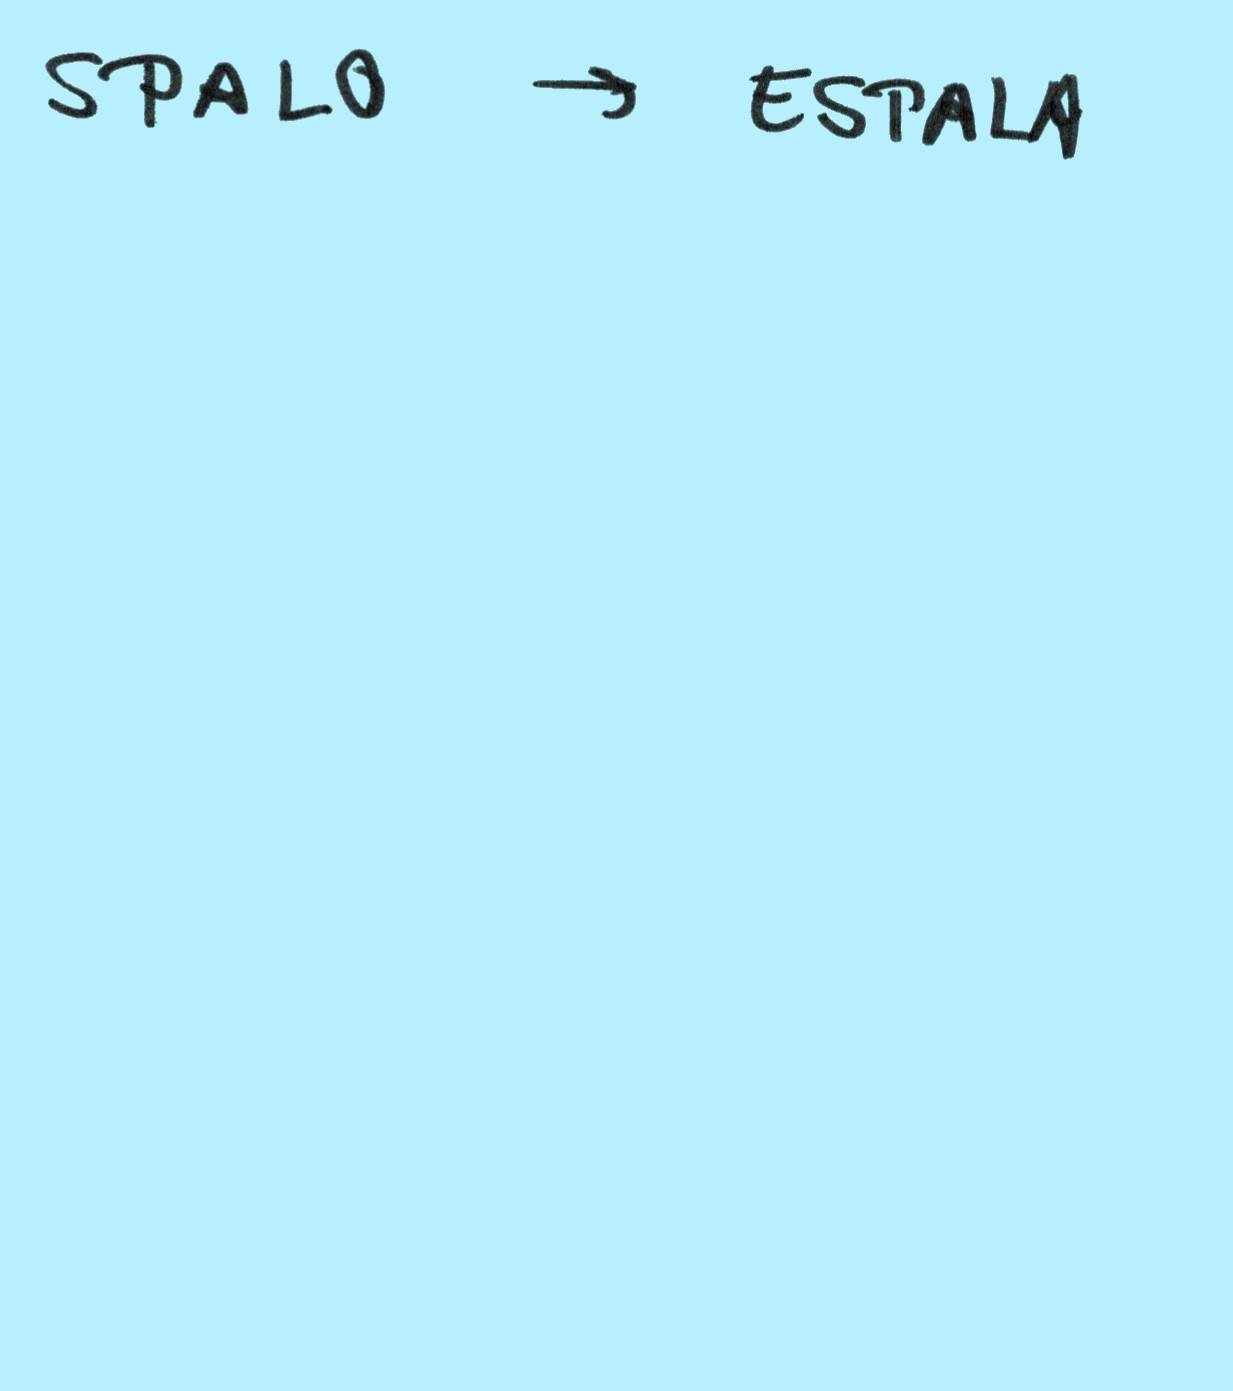 SPALO → ESPALA